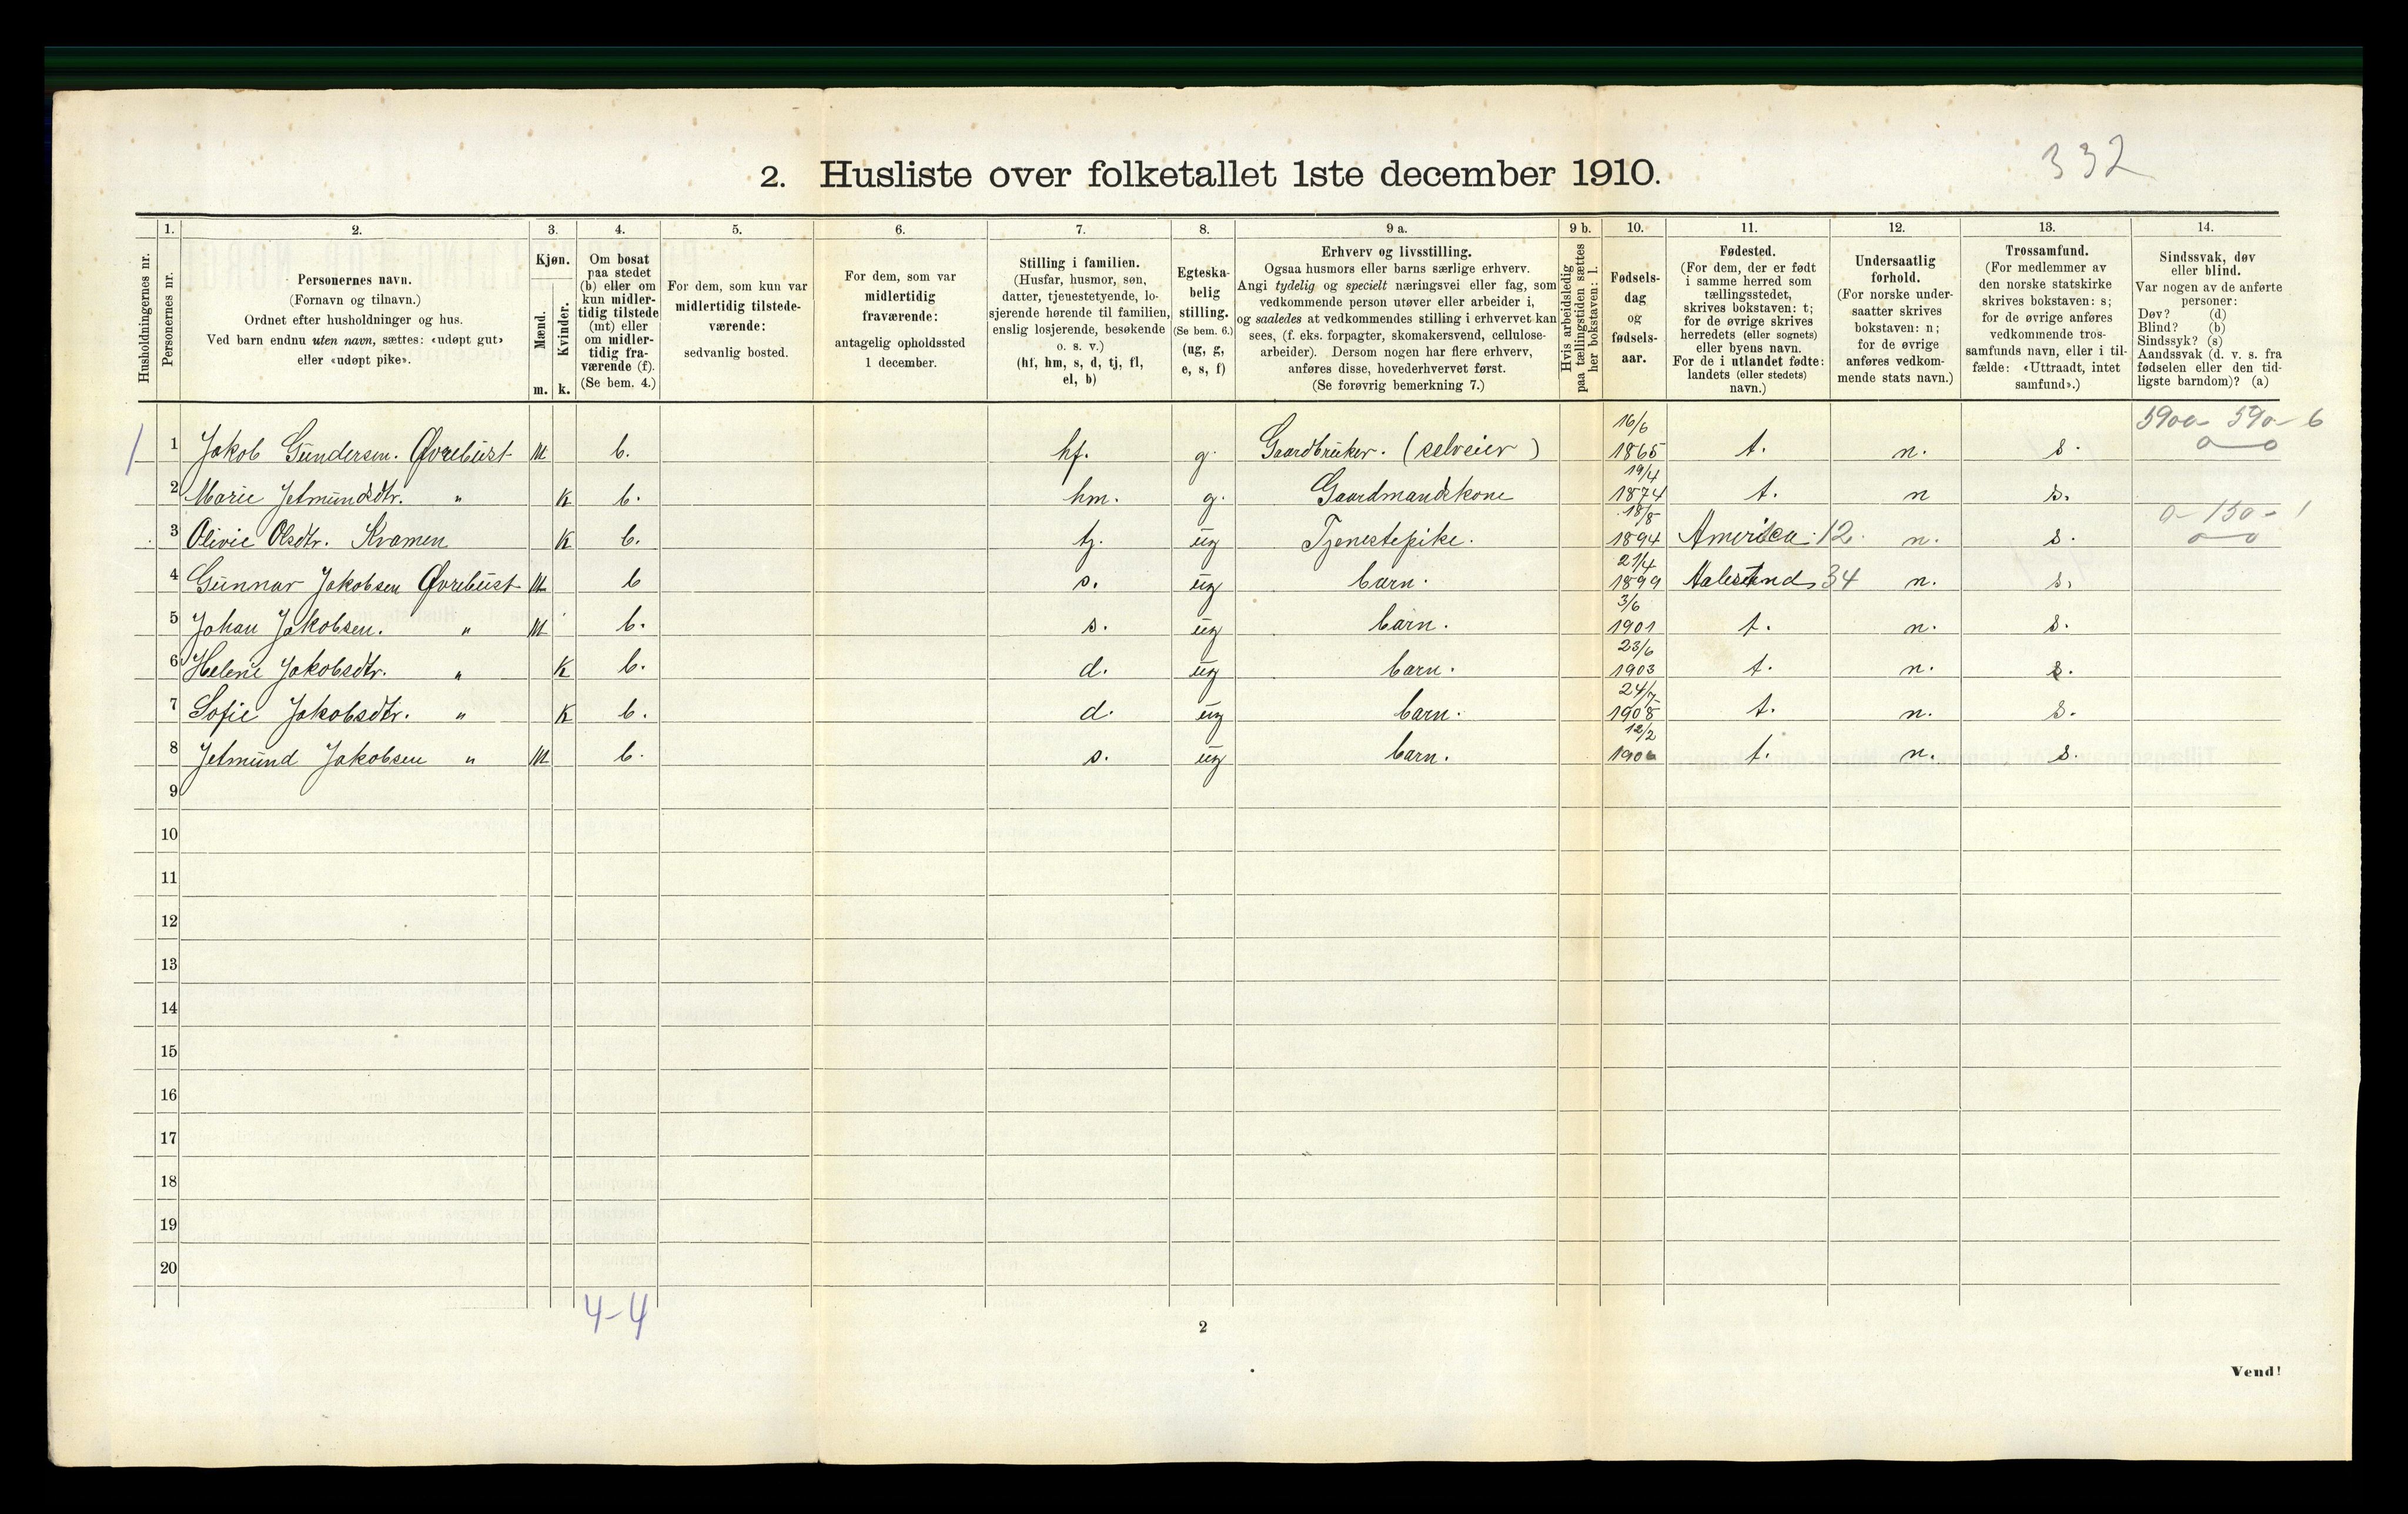 332
2. Husliste over folketallet 1ste december 1910.
Husholdningernes nr.
1. Personernes nr.
2. Personernes navn. (Fornavn og tilnavn.) Ordnet efter husholdninger og hus. Ved barn endnu uten navn, sættes: «udøpt gut» eller «udøpt pike».
3. Kjøn. Mænd. m. Kvinder. k.
4. Om bosat paa stedet (b) eller om kun midlertidig tilstede (mt) eller om midlertidig fraværende (f). (Se bem. 4.)
5. For dem, som kun var midlertidig tilstedeværende: sedvanlig bosted.
6. For dem, som var midlertidig fraværende: antagelig opholdssted 1 december.
7. Stilling i familien. (Husfar, husmor, søn, datter, tjenestetyende, losjerende hørende til familien, enslig losjerende, besøkende o. s. v.) (hf, hm, s, d, tj, fl, el, b)
8. Egteskabelig stilling. (Se bem. 6.) (ug, g, e, s, f)
9 a. Erhverv og livsstilling. Ogsaa husmors eller barns særlige erhverv. Angi tydelig og specielt næringsvei eller fag, som vedkommende person utøver eller arbeider i, og saaledes at vedkommendes stilling i erhvervet kan sees, (f. eks. forpagter, skomakersvend, cellulosearbeider). Dersom nogen har flere erhverv, anføres disse, hovederhvervet først. (Se forøvrig bemerkning 7.)
9 b. Hvis arbeidsledig paa tællingstiden sættes her bokstaven: l.
10. Fødselsdag og fødselsaar.
11. Fødested. (For dem, der er født i samme herred som tællingsstedet, skrives bokstaven: t; for de øvrige skrives herredets (eller sognets) eller byens navn. For de i utlandet fødte: landets (eller stedets) navn.)
12. Undersaatlig forhold. (For norske undersaatter skrives bokstaven: n; for de øvrige anføres vedkommende stats navn.)
13. Trossamfund. (For medlemmer av den norske statskirke skrives bokstaven: s; for de øvrige anføres vedkommende trossamfunds navn, eller i tilfælde: «Uttraadt, intet samfund».)
14. Sindssvak, døv eller blind. Var nogen av de anførte personer: Døv? (d) Blind? (b) Sindssyk? (s) Aandssvak (d. v. s. fra fødselen eller den tidligste barndom)? (a)
1 1 Jakob Gundersen. Øvrebust M b. hf. g. Gaardbruker. (selveier) 16/6 1865 t. n. s. 5900- 590- 6
2 Marie Jetmundsdtr. " K b. hm. g. Gaardmandskone 19/4 1874 t. n s.
3 Olivie Olsdtr. Kvamen K b. tj. ug Tjenestepike. 18/8 1894 Amerika. 12. n. s. 0-150-1
4 Gunnar Jakobsen Øvrebust M b s. ug barn. 21/4 1899 Aalesund 34 n. s.
5 Johan Jakobsen. " M b. s. ug barn. 3/6 1901 t. n. s.
6 Helene Jakobsdtr. " K b. d. ug barn. 23/6 1903 t. n. s.
7 Sofie Jakobsdtr. " K b. d. ug barn. 24/7 1908 t. n. s.
8 Jetmund Jakobsen " M b. s. ug barn. 12/2 1906 t. n. s.
9
10
11
12
13
14
15
16
17
18
19
20
4-4
2
Vend!